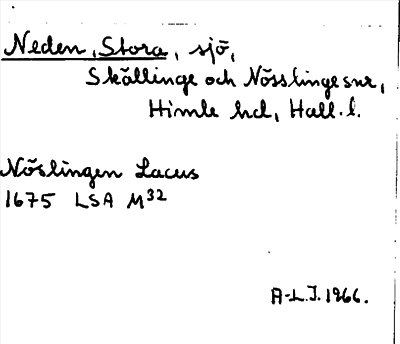 Neden, Stora, sjö,
Skällinge och Nösslinge snr,
Himle hd, Hall. l.
Nöslingen Lacus
1675 LSA M32
A-L.J. 1966.